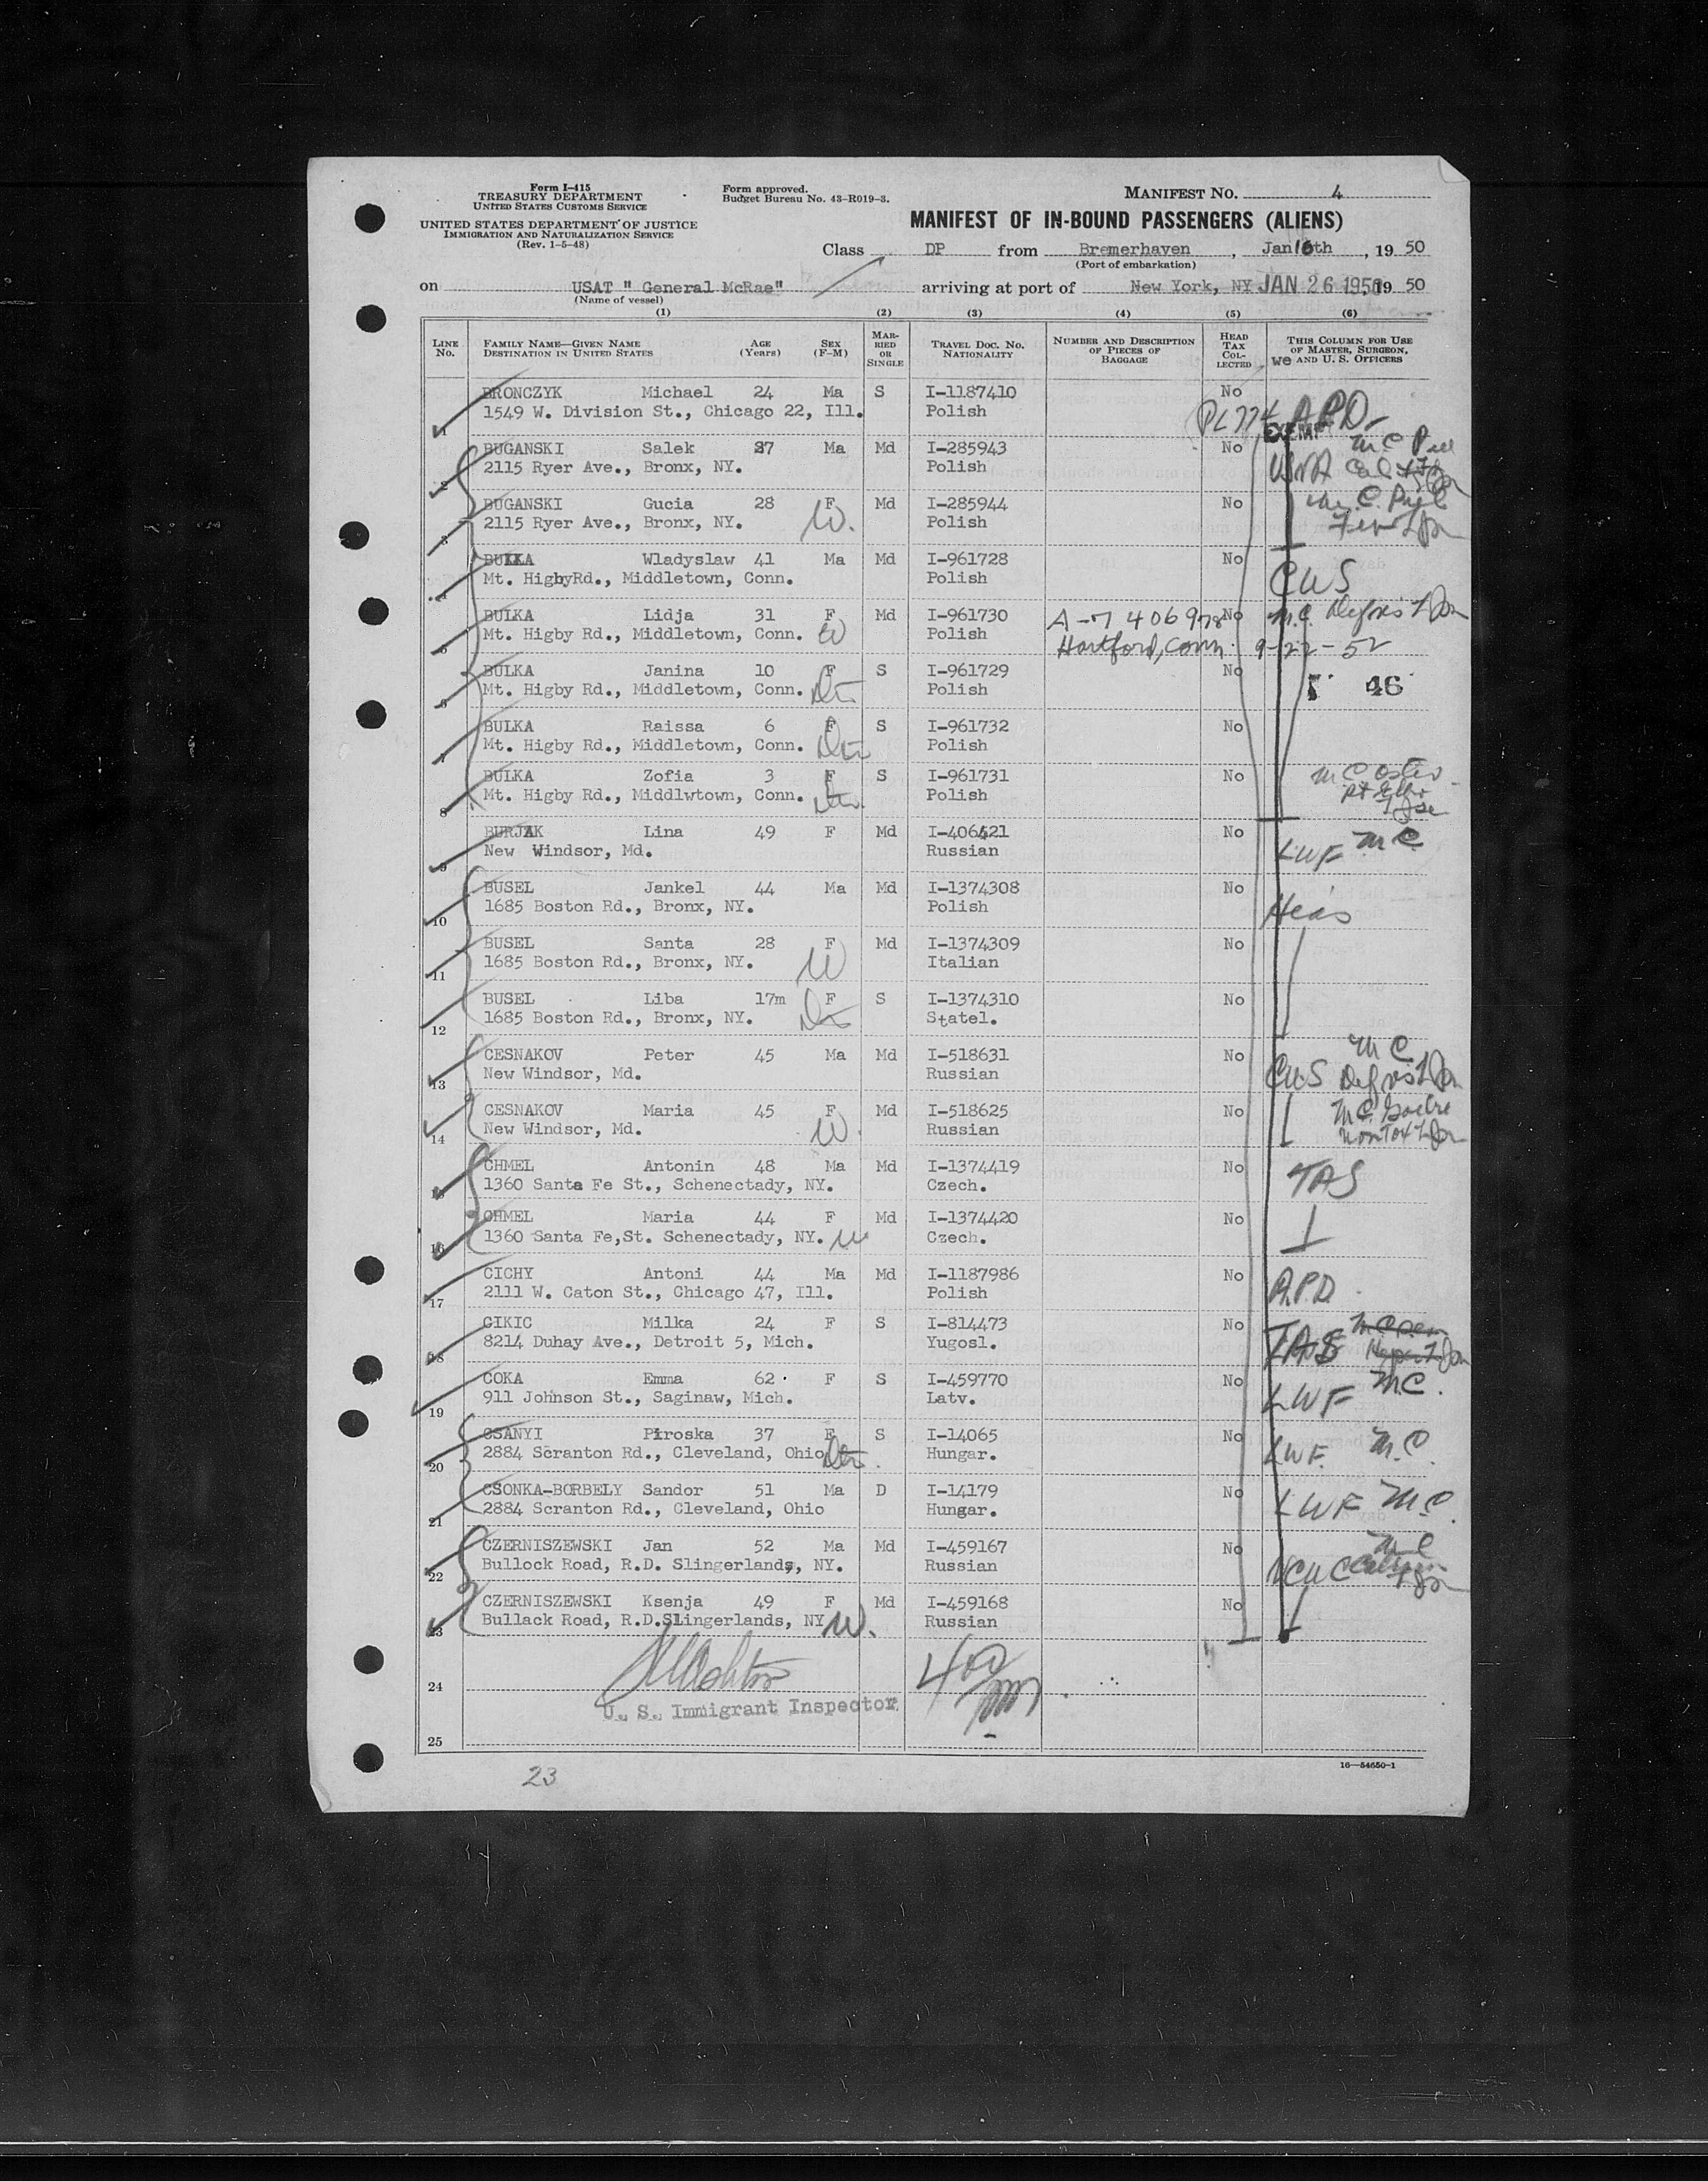 Form I-415
TREASURY DEPARTMENT
UNITED STATES CUSTOMS SERVICE
UNITED STATES DEPARTMENT OF JUSTICE
IMMIGRATION AND NATURALIZATION SERVICE
(Rev. 1-5-48)
Form approved.
Budget Bureau No. 43-R019-3.
MANIFEST NO. 4
MANIFEST OF IN-BOUND PASSENGERS (ALIENS)
Class DP from Bremerhaven, Jan 16th, 19 50
(Port of embarkation)
on USAT " General McRae" arriving at port of New York, NY JAN 26 1950 19 50
(Name of vessel)
(1) (2) (3) (4) (5) (6)
LINE No. FAMILY NAME—GIVEN NAME DESTINATION IN UNITED STATES AGE (Years) SEX (F-M) MARRIED OR SINGLE TRAVEL DOC. NO. NATIONALITY NUMBER AND DESCRIPTION OF PIECES OF BAGGAGE HEAD TAX COLLECTED THIS COLUMN FOR USE OF MASTER, SURGEON, AND U. S. OFFICERS
we
1 BRONCZYK Michael 24 Ma S I-1187410 No
1549 W. Division St., Chicago 22, Ill. Polish PL 774 A.P.D.
EXEMPT
2 BUGANSKI Salek 37 Ma Md I-285943 No
2115 Ryer Ave., Bronx, NY. Polish
3 BUGANSKI Gucia 28 F Md I-285944 No
2115 Ryer Ave., Bronx, NY. W. Polish
4 BULKA Wladyslaw 41 Ma Md I-961728 No
Mt. HigbyRd., Middletown, Conn. Polish CWS
5 BULKA Lidja 31 F Md I-961730 A-7 406978 No M.C.
Mt. Higby Rd., Middletown, Conn. W Polish Hartford, Conn. 9-22-52
6 BULKA Janina 10 F S I-961729 No
Mt. Higby Rd., Middletown, Conn. Polish 46
7 BULKA Raissa 6 F S I-961732 No
Mt. Higby Rd., Middletown, Conn. Polish
8 BULKA Zofia 3 F S I-961731 No
Mt. Higby Rd., Middlwtown, Conn. Polish
9 BURJAK Lina 49 F Md I-406421 No
New Windsor, Md. Russian LWF M.C.
10 BUSEL Jankel 44 Ma Md I-1374308 No
1685 Boston Rd., Bronx, NY. Polish Hias
11 BUSEL Santa 28 F Md I-1374309 No
1685 Boston Rd., Bronx, NY. W Italian
12 BUSEL Liba 17m F S I-1374310 No
1685 Boston Rd., Bronx, NY. Statel.
13 CESNAKOV Peter 45 Ma Md I-518631 No M C
New Windsor, Md. Russian CWS
14 CESNAKOV Maria 45 F Md I-518625 No
New Windsor, Md. W. Russian
15 CHMEL Antonin 48 Ma Md I-1374419 No
1360 Santa Fe St., Schenectady, NY. Czech. TAS
16 CHMEL Maria 44 F Md I-1374420 No
1360 Santa Fe,St. Schenectady, NY. W Czech.
17 CICHY Antoni 44 Ma Md I-1187986 No
2111 W. Caton St., Chicago 47, Ill. Polish A.P.D.
18 CIKIC Milka 24 F S I-814473 No
8214 Duhay Ave., Detroit 5, Mich. Yugosl.
19 COKA Emma 62 F S I-459770 No
911 Johnson St., Saginaw, Mich. Latv. LWF M.C.
20 CSANYI Piroska 37 F S I-14065 No
2884 Scranton Rd., Cleveland, Ohio Hungar. LWF. M.C.
21 CSONKA-BORBELY Sandor 51 Ma D I-14179 No
2884 Scranton Rd., Cleveland, Ohio Hungar. LWF M.C.
22 CZERNISZEWSKI Jan 52 Ma Md I-459167 No
Bullock Road, R.D. Slingerlands, NY. Russian
23 CZERNISZEWSKI Ksenja 49 F Md I-459168 No
Bullack Road, R.D.Slingerlands, NY W. Russian
24
U. S. Immigrant Inspector
25
23
16—54650-1